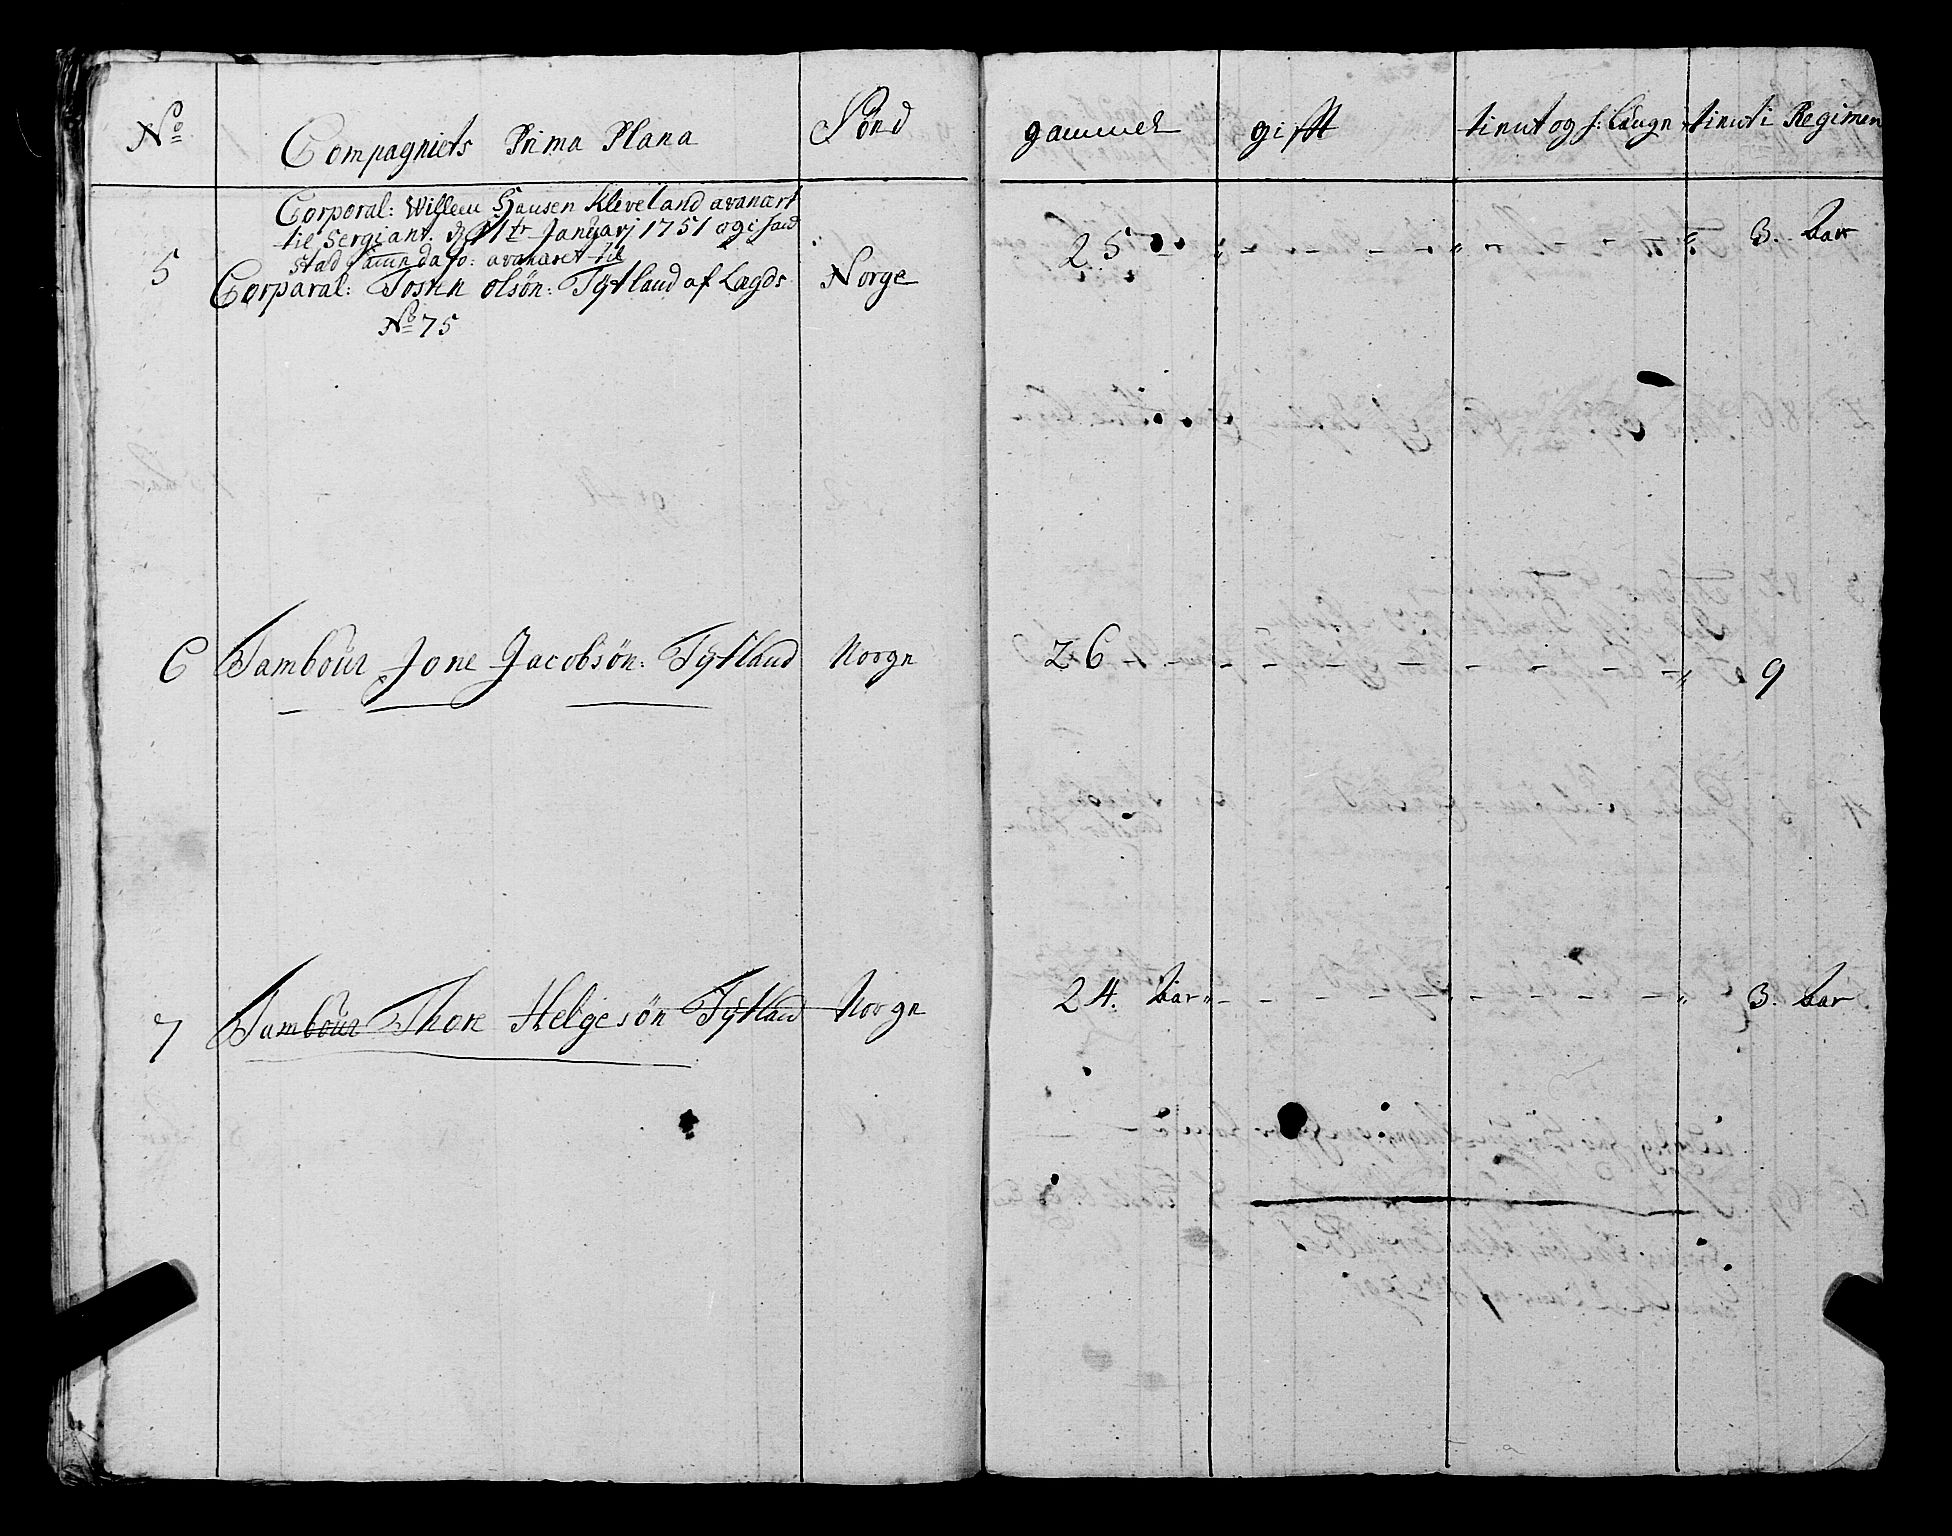 No Compagniets Prima Plana Fönd gammel gifft tient og f: Laugn tient i Regimen
Corporal: Willem Hansen Kleveland avancert
til Sergiant. d 11tr Januarj 1751 og i hans
stad samme dato: avanceret til
5 Corparal: Tosten olsön: Tÿtland af Lægds Norge 25 3. aar
No 75
6 Tambour Jone Jacobsön: Tÿtland Norge 26 9
7 Tambour Thore Helgesön Tÿtland Norge 24. aar 3. aar